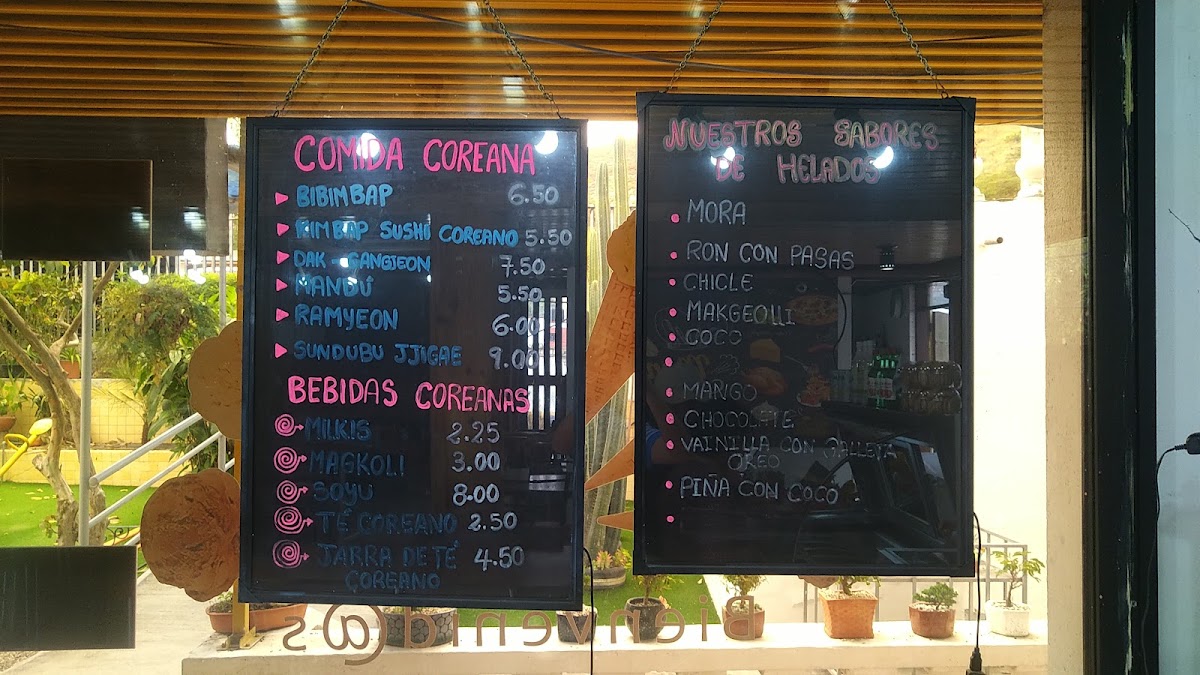 COMIDA COREANA
BIBIMBAP 6.50
KIMBAP SUSHI COREANO 5.50
DAK-GANGJEON 7.50
MANDÚ 5.50
RAMYEON 6.00
SUNDUBU JJIGAE 9.00
BEBIDAS COREANAS
MILKIS 2.25
MAGKOLI 3.00
SOYU 8.00
TÉ COREANO 2.50
JARRA DE TÉ 4.50
COREANO
NUESTROS SABORES
DE HELADOS
MORA
RON CON PASAS
CHICLE
MAKGEOLLI
COCO
MANGO
CHOCOLATE
VAINILLA CON GALLETA
OREO
PIÑA CON COCO
Bienvenid@s